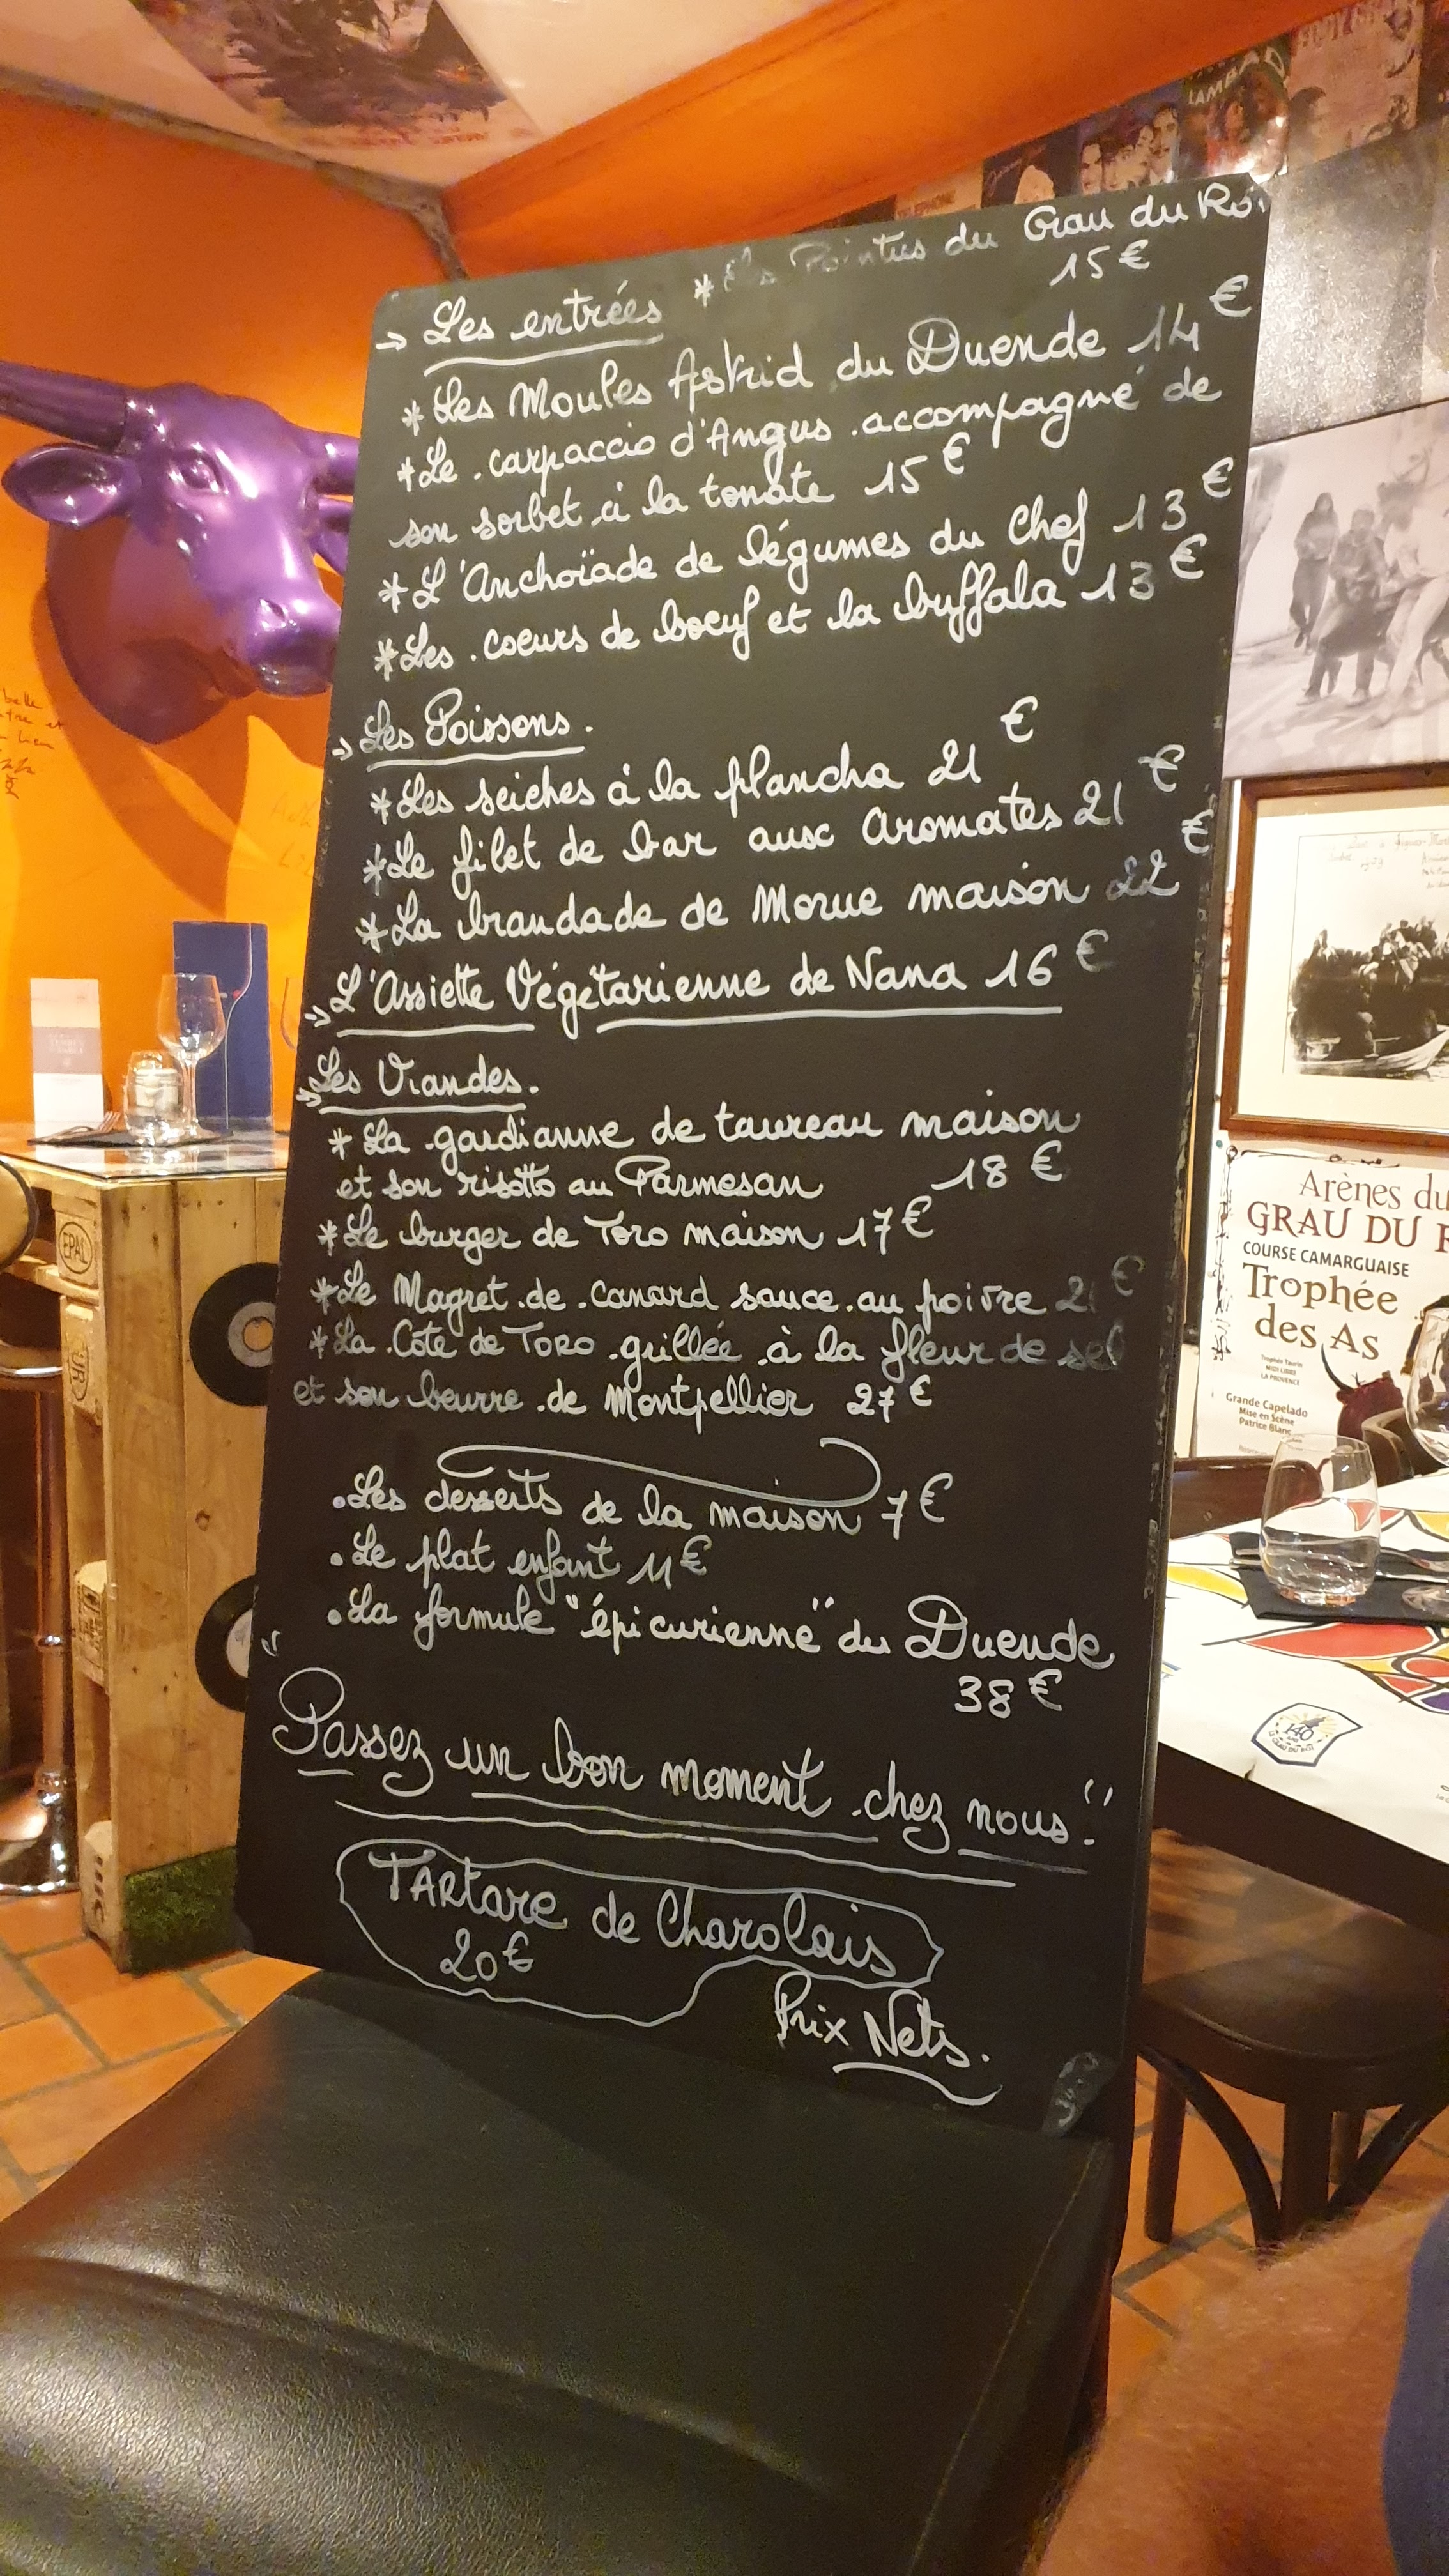 → Les entrées * Les Pointus du Grau du Roi
15€
* Les Moules Astrid du Duende 14€
* Le carpaccio d'Angus accompagné de
son sorbet à la tomate 15€
* L'Anchoïade de légumes du Chef 13€
* Les coeurs de boeuf et la buffala 13€
→ Les Poissons.
* Les seiches à la plancha 21€
* Le filet de bar aux aromates 21€
* La brandade de Morue maison 22€
→ L'Assiette Végétarienne de Nana 16€
→ Les Viandes.
* La gardianne de taureau maison
et son risotto au Parmesan 18€
* Le burger de Toro maison 17€
* Le Magret de canard sauce au poivre 21€
* La Côte de Toro grillée à la fleur de sel
et son beurre de Montpellier 27€
. Les desserts de la maison 7€
. Le plat enfant 11€
. La formule "épicurienne" du Duende
38€
"Passez un bon moment chez nous."
TARtare de Charolais
20€
Prix Nets.
LAMBAD
EPAL
Arènes du
GRAU DU R
COURSE CAMARGUAISE
Trophée
des As
Trophée Taurin
MIDI LIBRE
LA PROVENCE
Grande Capelado
Mise en Scène
Patrice Blanc
140
ANS